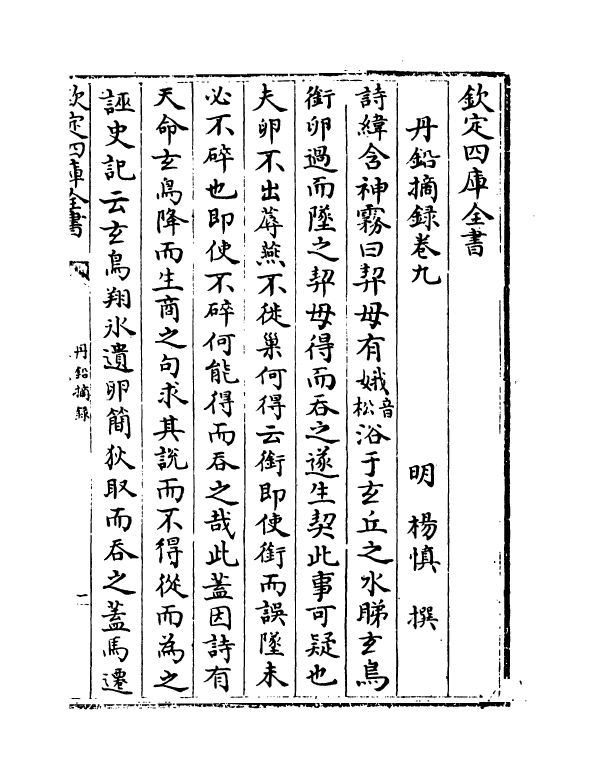 欽定四庫全書
丹鉛摘録卷九
明 楊慎 撰
詩緯含神霧曰契母有娀音松浴于玄丘之水睇玄鳥
銜卵過而墜之契母得而吞之遂生契此事可疑也
夫卵不出蓐燕不徙巢何得云銜即使銜而誤墜未
必不碎也即使不碎何能得而吞之哉此蓋因詩有
天命玄鳥降而生商之句求其説而不得從而為之
誣史記云玄鳥翔水遺卵簡狄取而吞之蓋馬遷
欽定四庫全書
丹鉛摘録
一